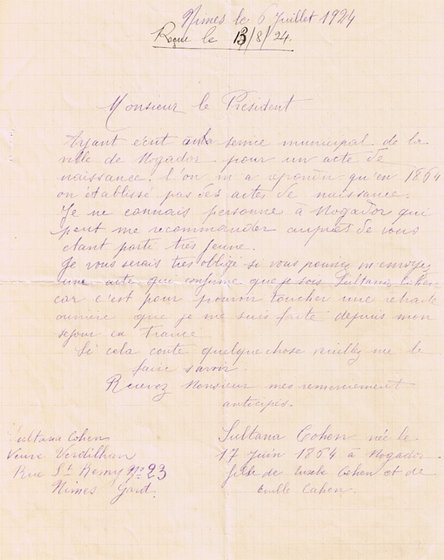 Nimes le 6 Juillet 1924
Reçue le 13/8/24.
Monsieur le President
Ayant ecrit au service municipal de la
ville de Mogador pour un acte de
naissance. l'on m'a repondu qu'en 1864
on établissé pas des actes de naissance.
Je ne connais personne à Mogador qui
peut me recommander auprès de vous
etant partie très jeune.
Je vous serais très obligé si vous pouvez m'envoyez
une acte que confirme que je sois Sultana Cohen
car c'est pour pouvoir toucher une retraite
ouvrière que je me suis faite depuis mon
sejour en France
Si cela coute quelque chose veuillez me le
faire savoir.
Recevez Monsieur mes remerciement
anticipés.
Sultana Cohen
Veuve Verdilhan
Rue St Remy No 23
Nimes Gard.
Sultana Cohen née le
17 Juin 1864 à Mogador
fille de Cohen et de
Cohen.